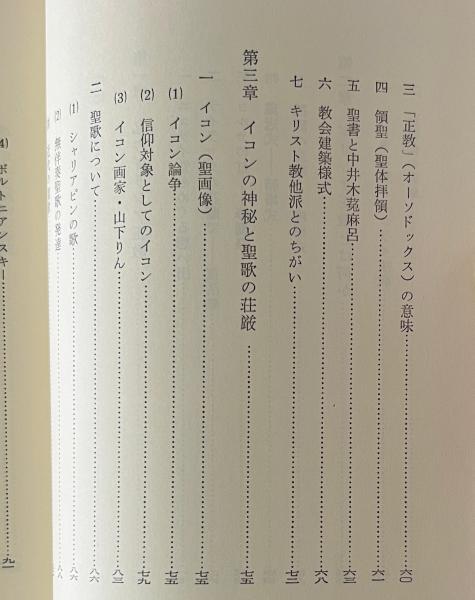 三 「正教」(オーソドックス)の意味……六〇
四 領聖(聖体拝領)……六一
五 聖書と中井木菟麻呂……六三
六 教会建築様式……六八
七 キリスト教他派とのちがい……七二
第三章 イコンの神秘と聖歌の荘厳……七五
一 イコン(聖画像)……七五
(1) イコン論争……七五
(2) 信仰対象としてのイコン……七九
(3) イコン画家・山下りん……八三
二 聖歌について……八六
(1) シャリアピンの歌……八六
(2) 無伴奏聖歌の発達……八八
(4) ボルトニアンスキー……九一